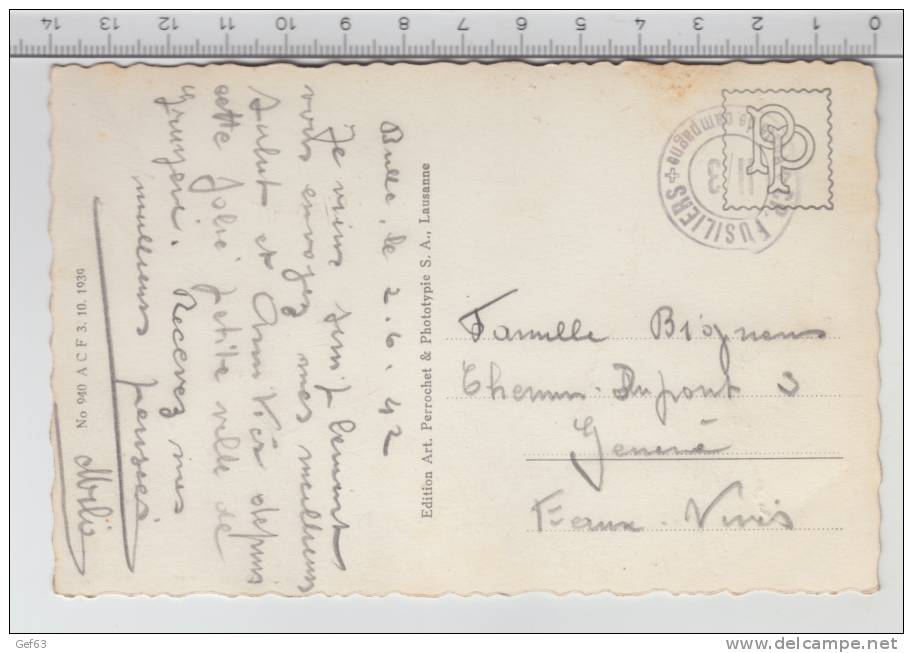 14 13 12 11 10 9 8 7 6 5 4 3 2 1 0
Bulle, le 2.6.42
Je viens simplement
vous envoyez mes meilleurs
salut et Amitiés depuis
cette jolie petite ville de
Gruyère. Recevez mes
meilleurs pensées
No 940 A C F 3. 10. 1939
Edition Art. Perrochet & Phototypie S. A., Lausanne
PP
FUSILIERS
de campagne
II/3
Famille
Chemin Dupont 3
Genève
Eaux-Vives
Gef63
www.delcampe.net